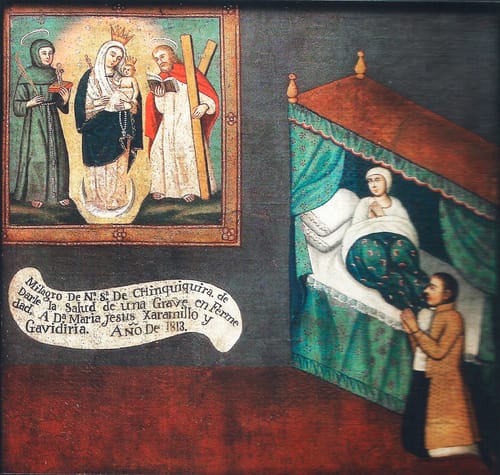 Milagro De Nᵃ. Sᵃ. De CHinquiquira. de
Darle la Salud de una Grave en Ferme
dad. A Dᵃ Maria Jesus Xaramillo y
Gavidiria. Año De 1813.